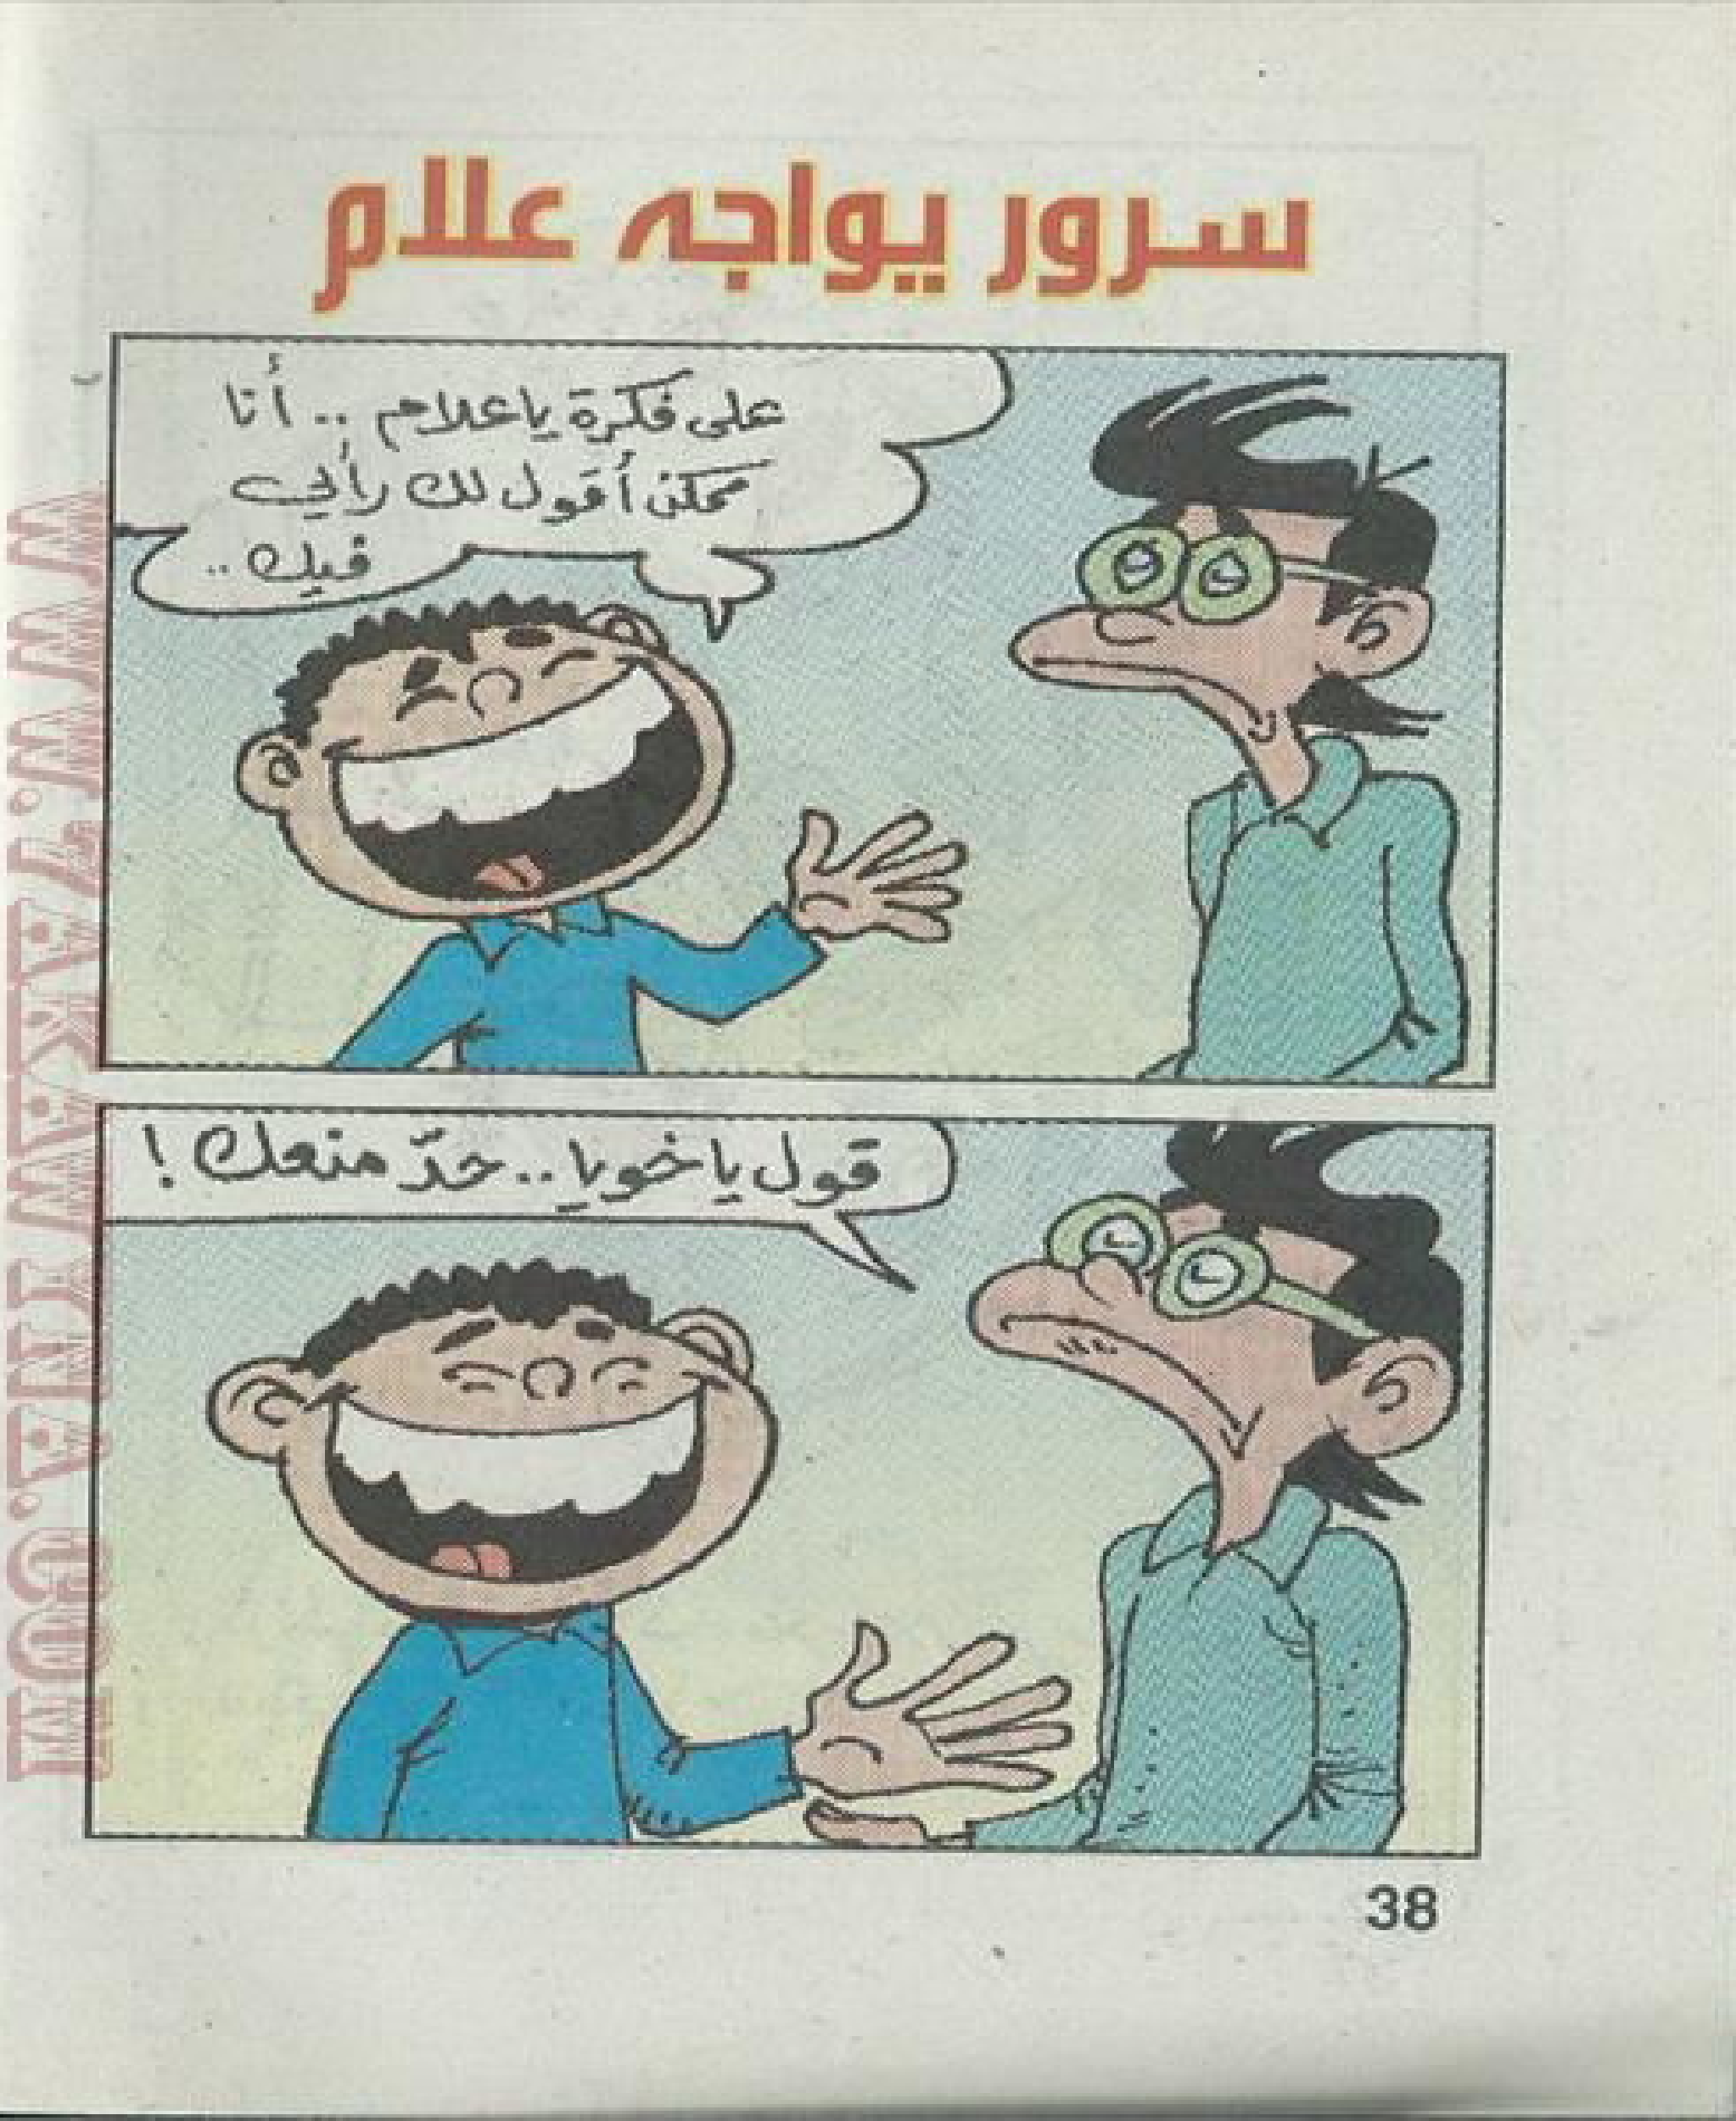 سرور يواجه علام
على فكرة ياعلام .. أنا
ممكن أقول لك رأيي
فيك ..
قول ياخويا .. حدّ منعك !
38